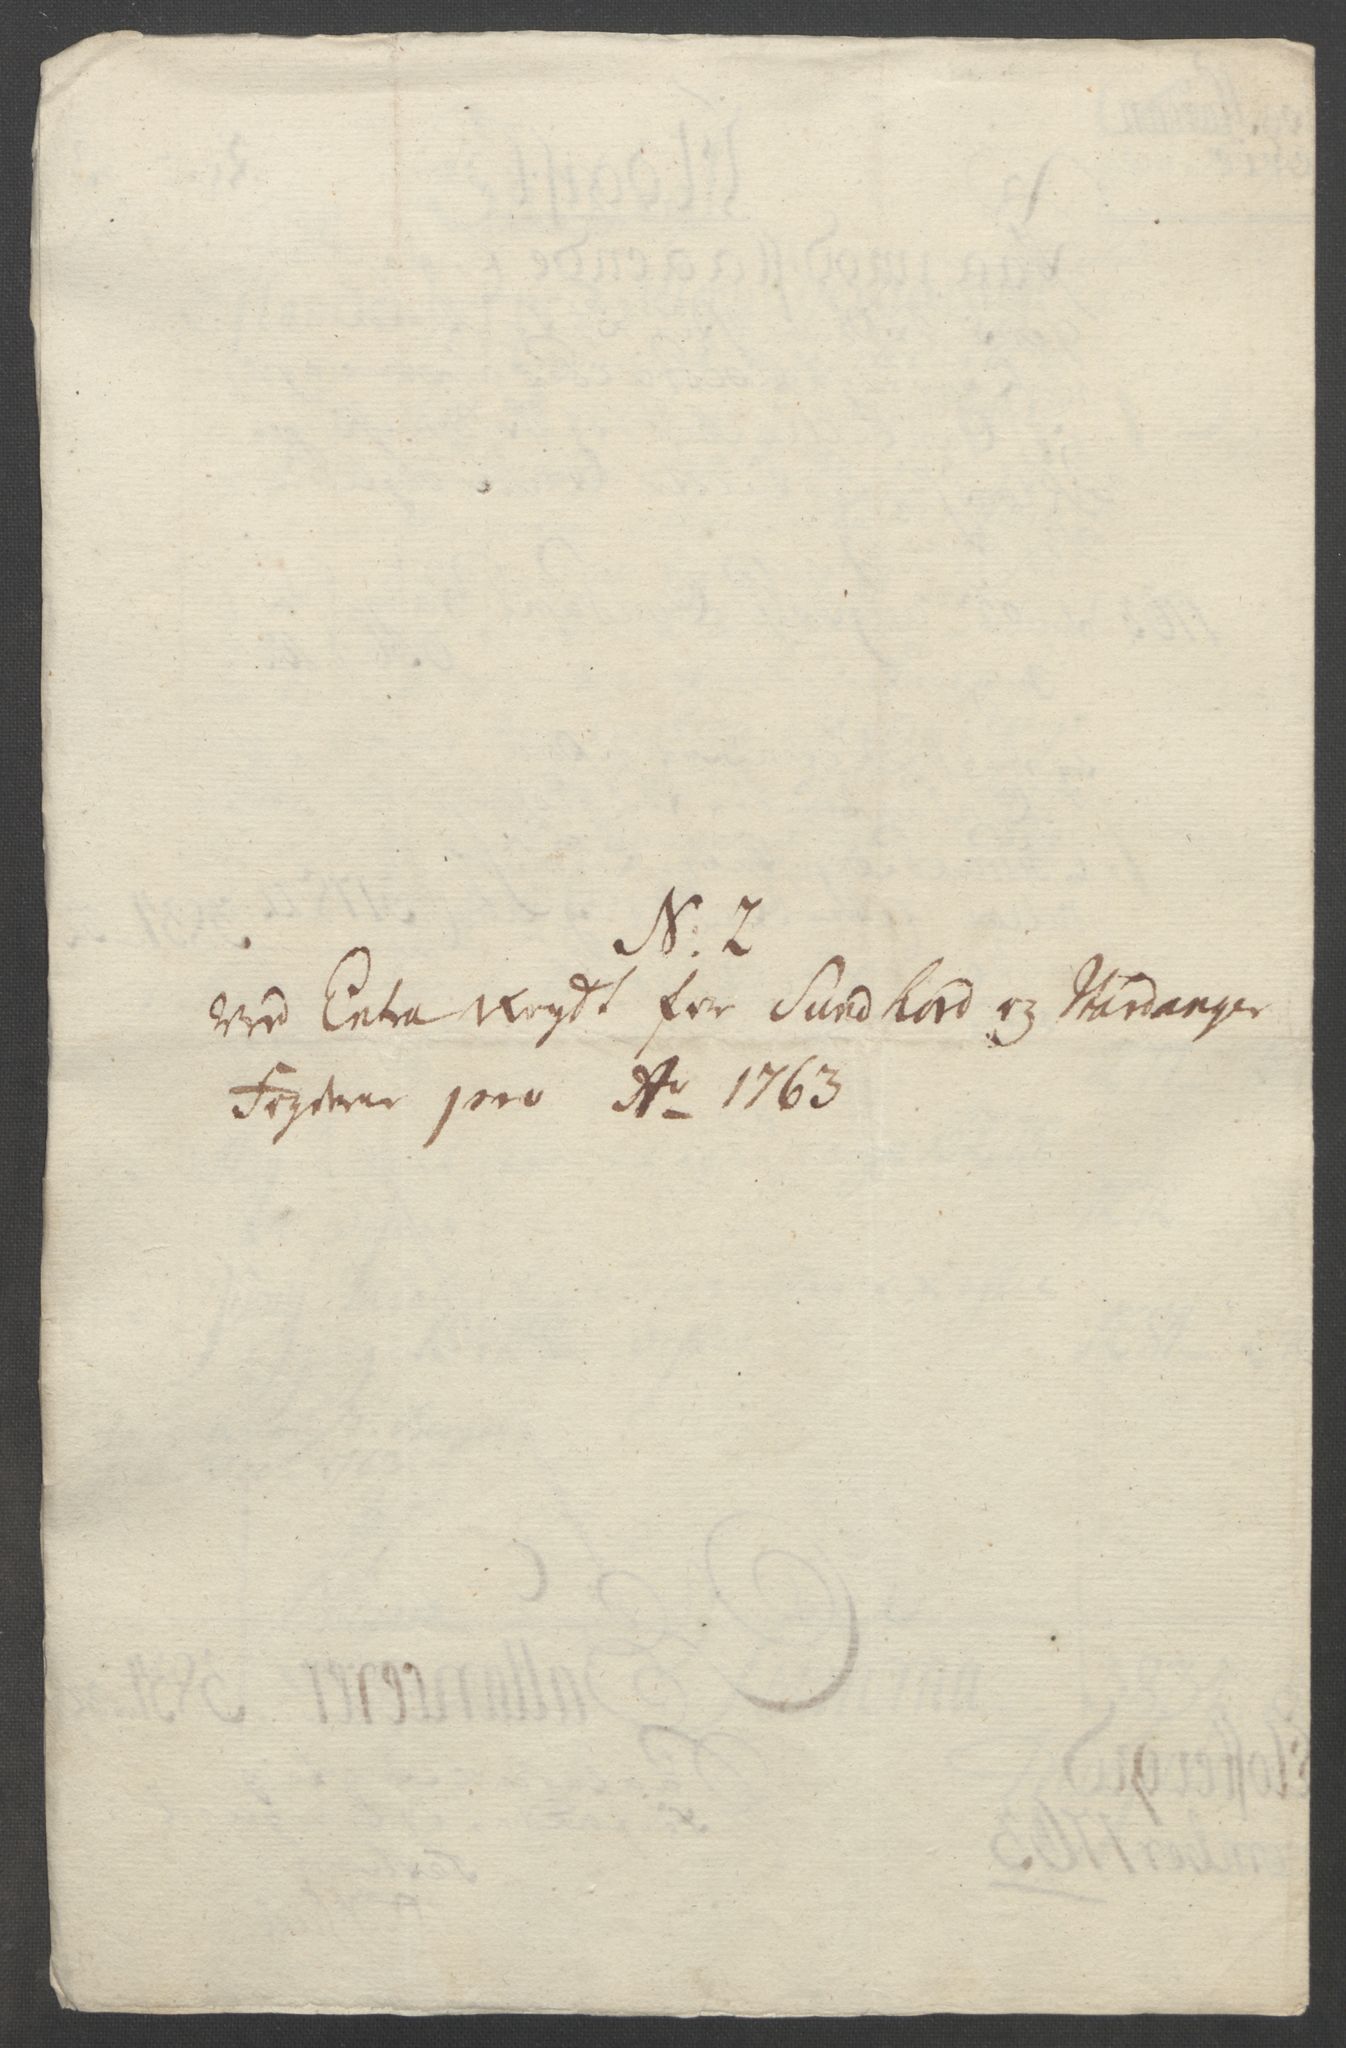 N: 2
ved Extra Regnsk for Sundhord og Hardanger
Fogderie pro Ao 1763